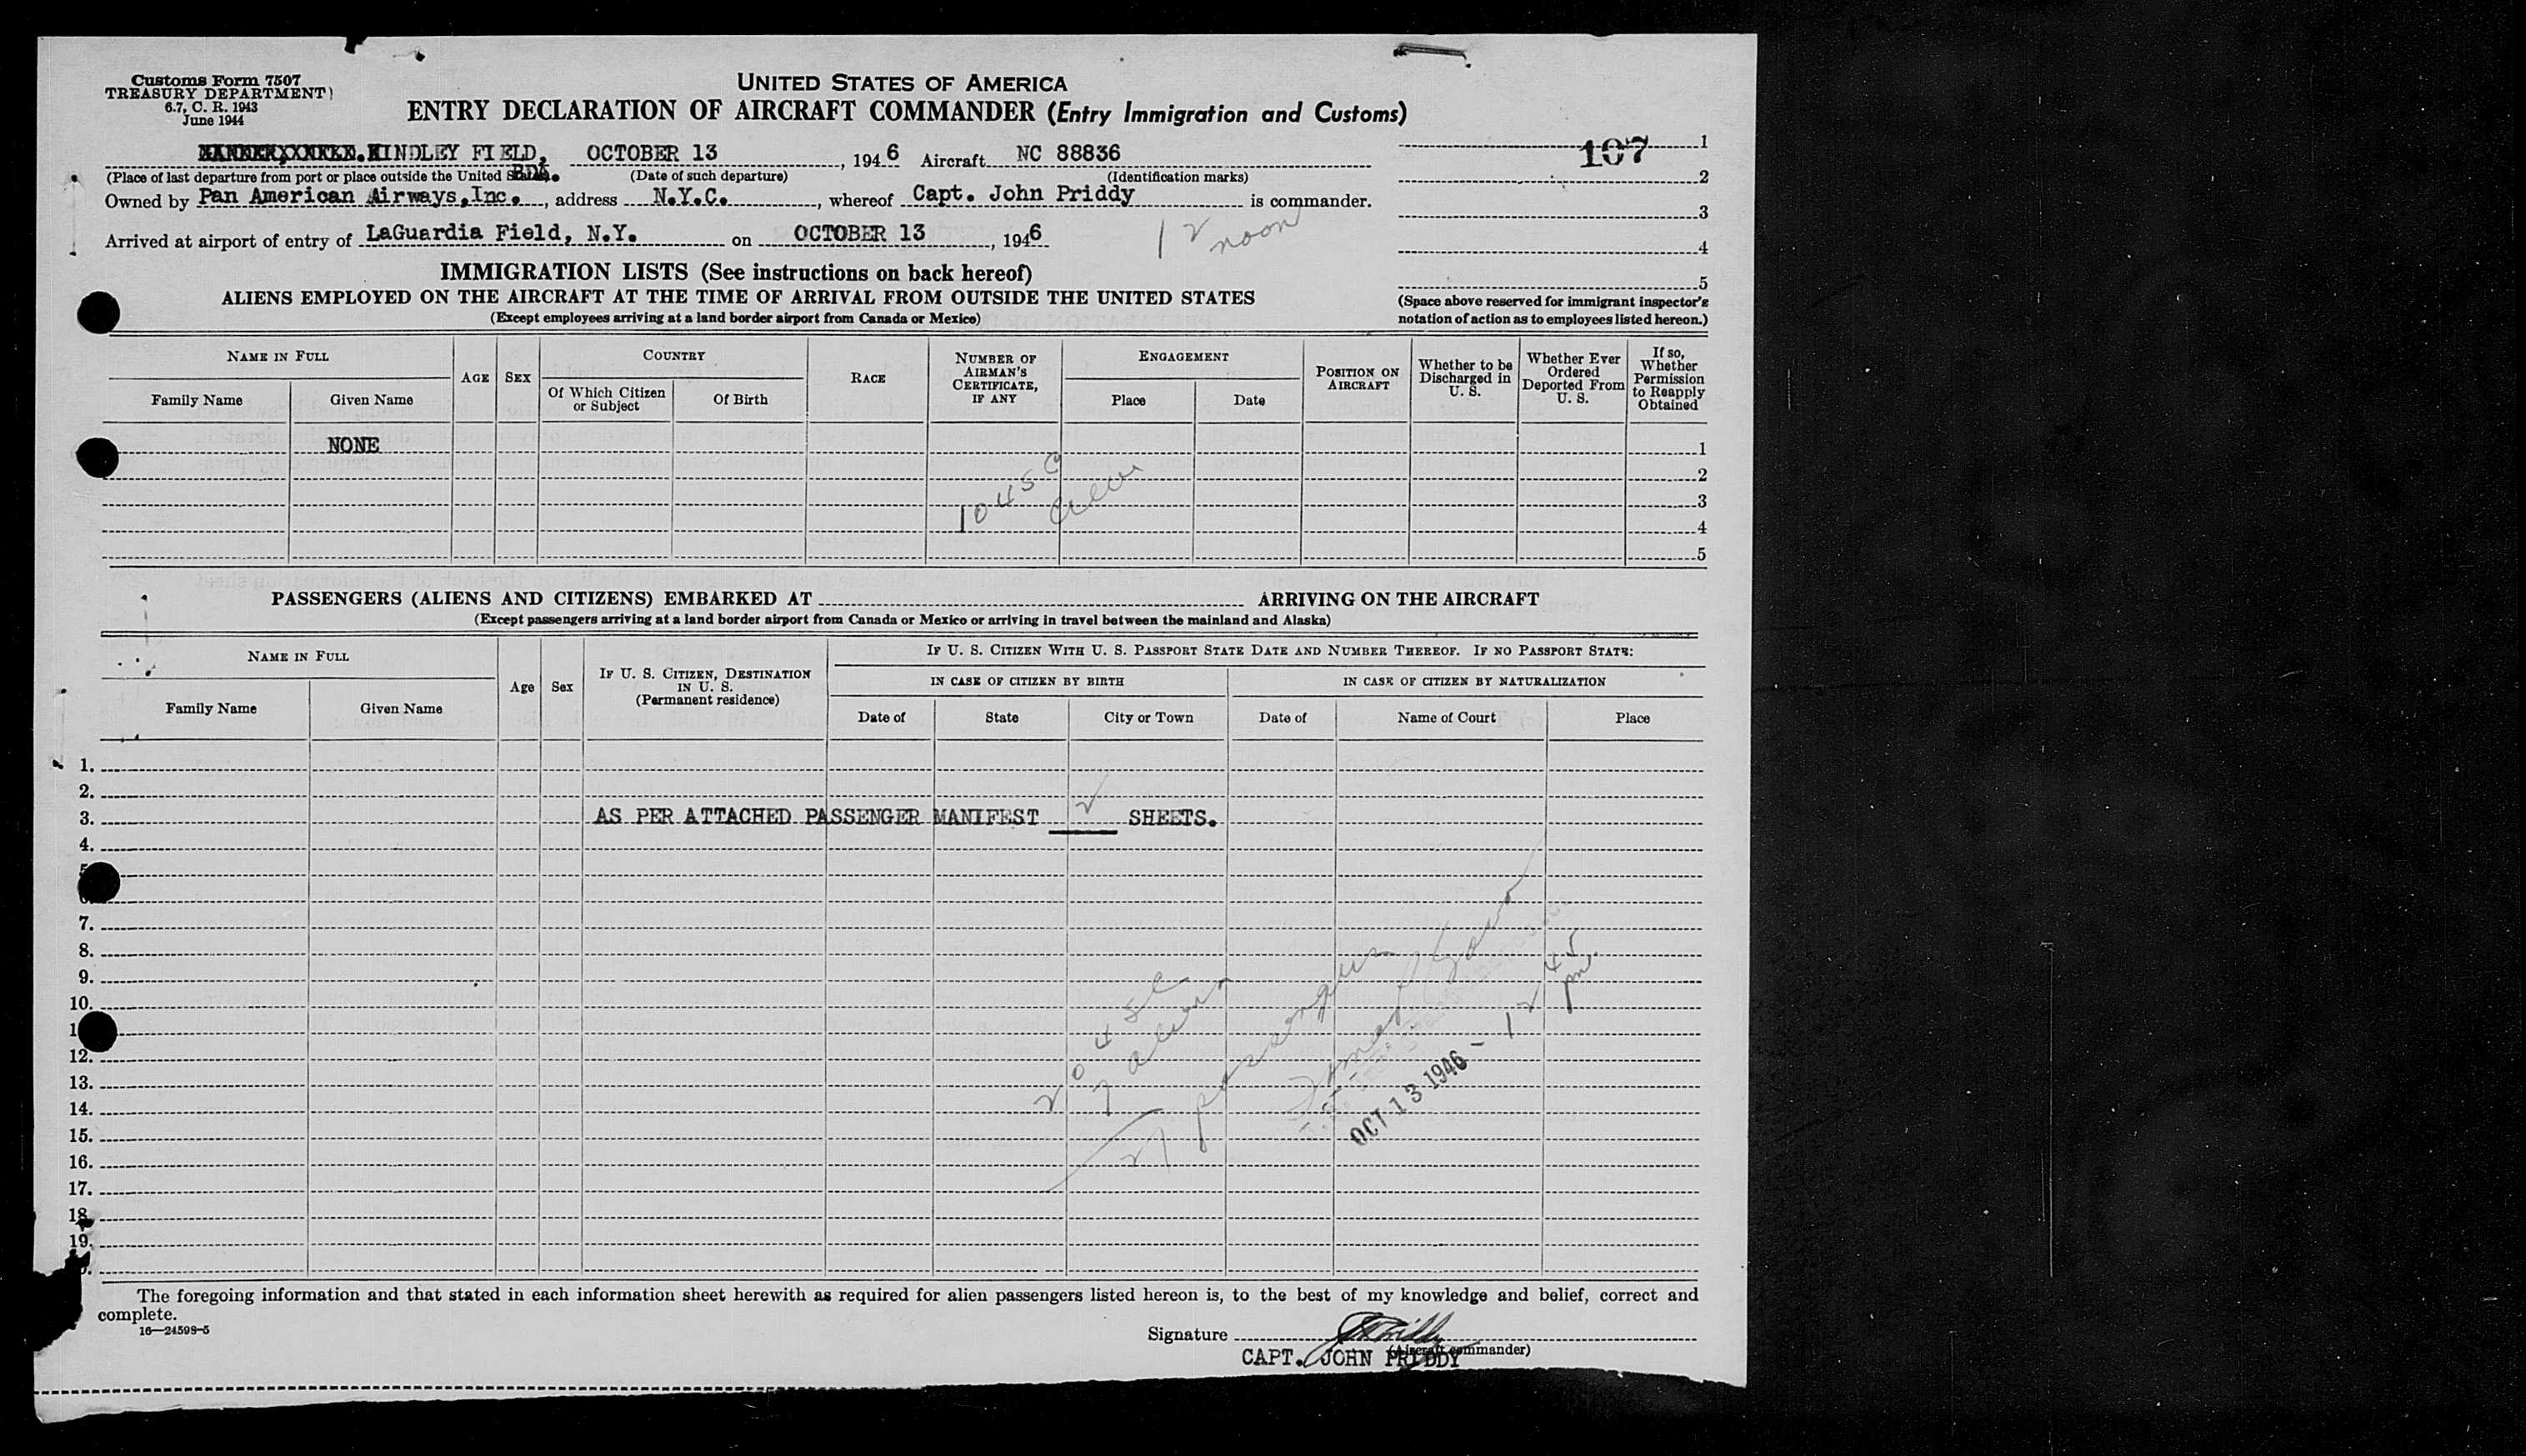 Customs Form 7507
TREASURY DEPARTMENT)
6.7, C. R. 1943
June 1944
UNITED STATES OF AMERICA
ENTRY DECLARATION OF AIRCRAFT COMMANDER (Entry Immigration and Customs)
KINDLEY FIELD, BDA. OCTOBER 13, 1946 Aircraft NC 88836
(Place of last departure from port or place outside the United States) (Date of such departure) (Identification marks)
Owned by Pan American Airways,Inc., address N.Y.C., whereof Capt. John Priddy is commander.
Arrived at airport of entry of LaGuardia Field, N.Y. on OCTOBER 13, 1946
12 noon
107
1
2
3
4
5
(Space above reserved for immigrant inspector's
notation of action as to employees listed hereon.)
IMMIGRATION LISTS (See instructions on back hereof)
ALIENS EMPLOYED ON THE AIRCRAFT AT THE TIME OF ARRIVAL FROM OUTSIDE THE UNITED STATES
(Except employees arriving at a land border airport from Canada or Mexico)
NAME IN FULL
Family Name
Given Name
AGE
SEX
COUNTRY
Of Which Citizen or Subject
Of Birth
RACE
NUMBER OF AIRMAN'S CERTIFICATE, IF ANY
ENGAGEMENT
Place
Date
POSITION ON AIRCRAFT
Whether to be Discharged in U. S.
Whether Ever Ordered Deported From U. S.
If so, Whether Permission to Reapply Obtained
NONE 1
2
3
4
5
10 45 C
Crew
PASSENGERS (ALIENS AND CITIZENS) EMBARKED AT ARRIVING ON THE AIRCRAFT
(Except passengers arriving at a land border airport from Canada or Mexico or arriving in travel between the mainland and Alaska)
NAME IN FULL
Family Name
Given Name
Age
Sex
IF U. S. CITIZEN, DESTINATION IN U. S.
(Permanent residence)
IF U. S. CITIZEN WITH U. S. PASSPORT STATE DATE AND NUMBER THEREOF. IF NO PASSPORT STATE:
IN CASE OF CITIZEN BY BIRTH
IN CASE OF CITIZEN BY NATURALIZATION
Date of
State
City or Town
Date of
Name of Court
Place
1.
2.
3. AS PER ATTACHED PASSENGER MANIFEST 2 SHEETS.
4.
7.
8.
9.
10.
12.
13.
14.
15.
16.
17.
18.
19.
20 45 C
7 aliens
27 passengers
OCT 13 1946 - 12 45 pm.
The foregoing information and that stated in each information sheet herewith as required for alien passengers listed hereon is, to the best of my knowledge and belief, correct and
complete.
16—24598-5
Signature JPriddy
(Aircraft commander)
CAPT. JOHN PRIDDY